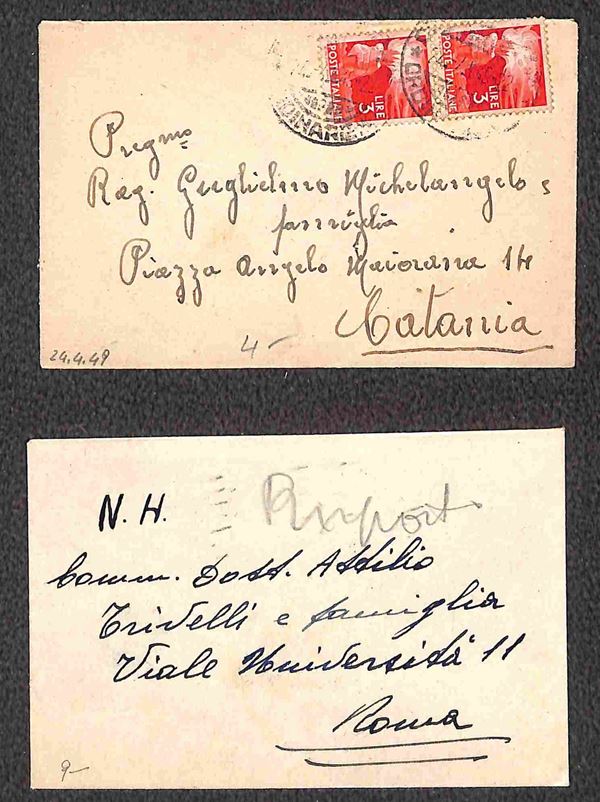 POSTE ITALIANE LIRE 3
POSTE ITALIANE LIRE 3
Pregmo
Rag. Guglielmo Michelangelo e
famiglia
Piazza Angelo Maiorana 14
Catania
24.4.49
4-
N. H.
Comm. Dott. Attilio
Trivelli e famiglia
Viale Università 11
Roma
9-